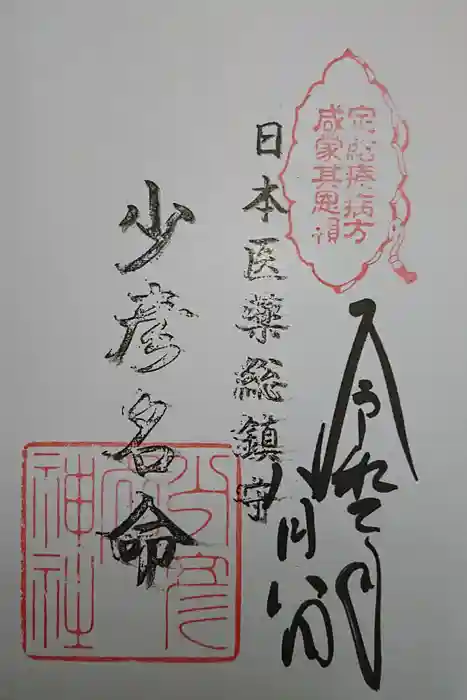 定給療病方
咸蒙其恩頼
令和
日本医薬総鎮守
少彦名命
少彦名神社